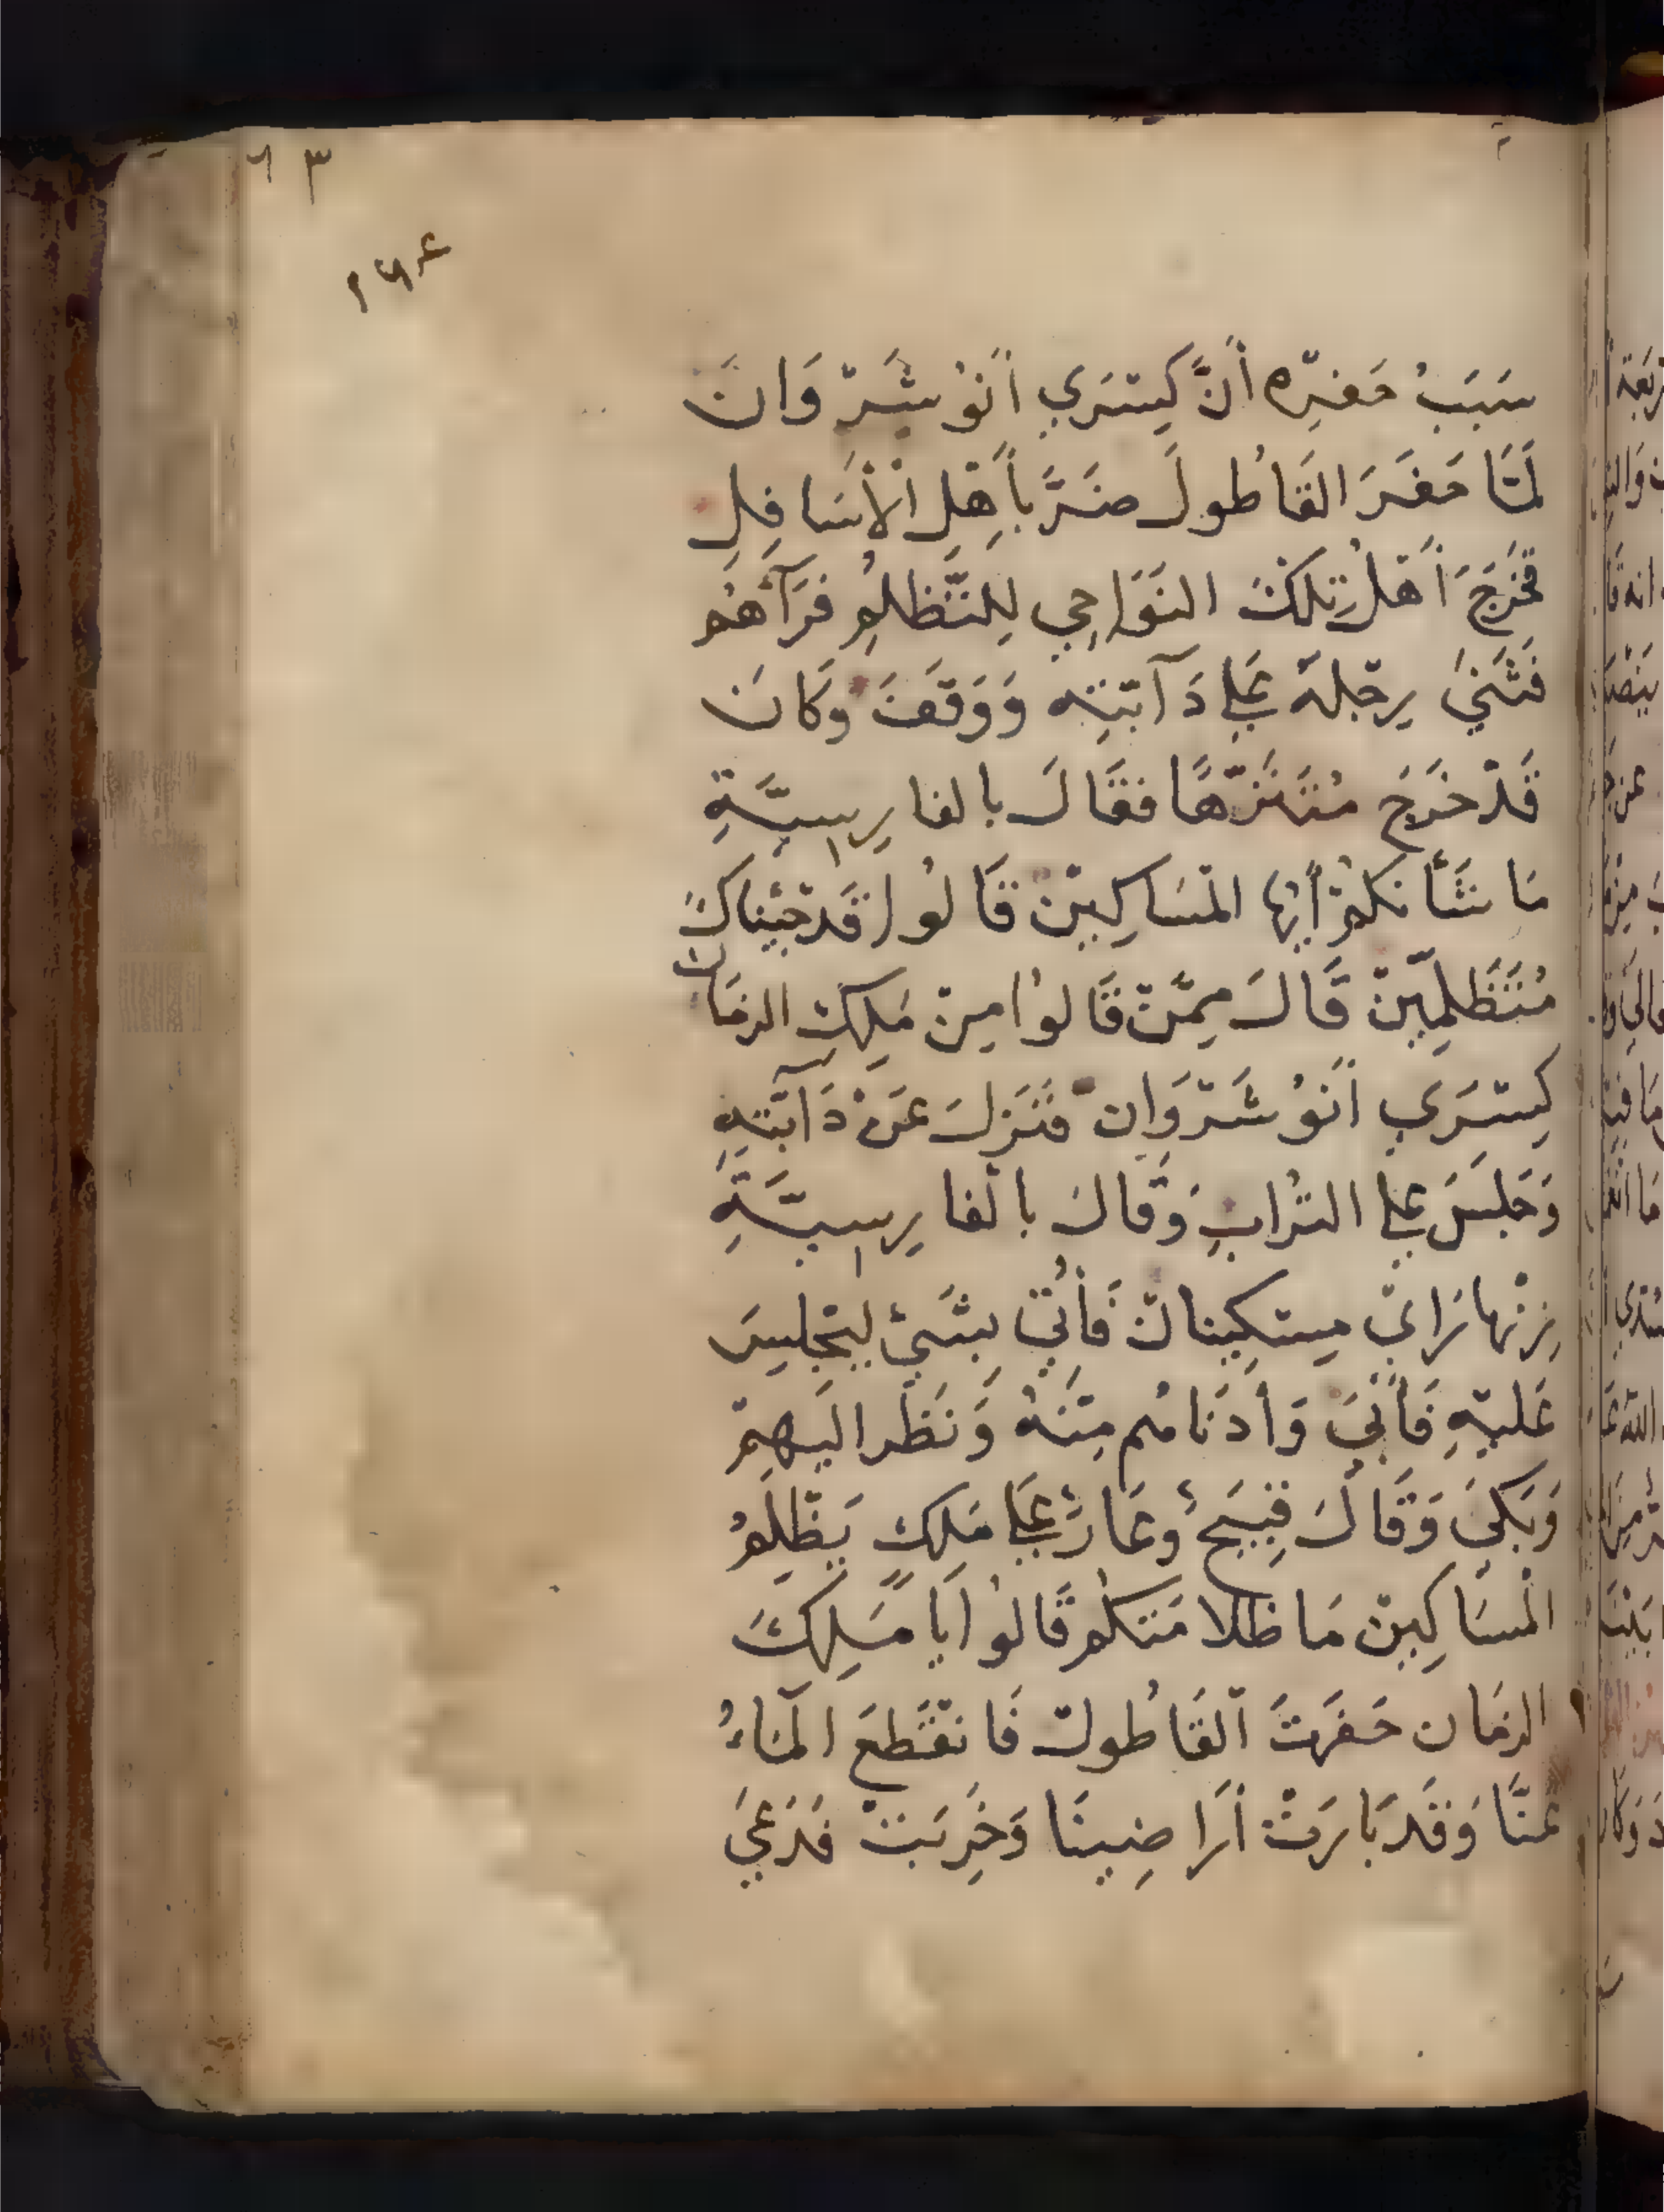 ٦٣
١٦٤
سَبَبُ حَفرِه أَنَّ كِسْرَي أَنُوشَرْوَانَ
لَمَّا حَفَرَ القَاطُولَ ضَرَّ بأَهْلِ الأَسَافِلِ
فَخَرَجَ أَهْلُ تِلْكَ النَوَاحِي لِلتَّظَلُمِ فَرَآهُم
فَثَنَي رِجْلهُ عَلي دَآبّتِه وَوَقَفَ وَكَانَ
قَدْ خَرَجَ مُتَنَزّهًا فقَالَ بالفارِسِيَّةِ
مَا شَأنكُمْ أَيُّها المْسَاكِينْ قَالُوا قَدْ جِئْناكَ
مُتَظَلِّمِينْ قَالَ مِمَّنْ قَالُوا مِنْ مَلِكِ الزمَان
كِسْرَي أَنُوشَرْوَان فَنَزلَ عَنْ دَآبّتِهِ
وَجَلَسَ عَلي التُرَابِ وَقَالَ بالفارِسِيَّةِ
زِنْهارَايْ مِسْكِينان فَأُتِيَ بشَيْءٍ لِيَجْلِسَ
عَليْهِ فَأَبَيَ وَأَدنَاهُم مِنْهُ وَنَظَر الَيهِمْ
وَبَكَيَ وَقَالَ قبِيَحٌ وعَارٌ عَلَي مَلِكٍ يَظْلِمُ
المْسَاكِينْ مَا ظلامَتكُم قَالُوا يَا مَلِكَ
الزمَان حَفَرْتَ القَاطُول فَانقَطعَ المَآءُ
عَنَّا وَقَد بَارَتْ أَرَاضِينَا وَخَرِبَتْ فَدَعَيَ